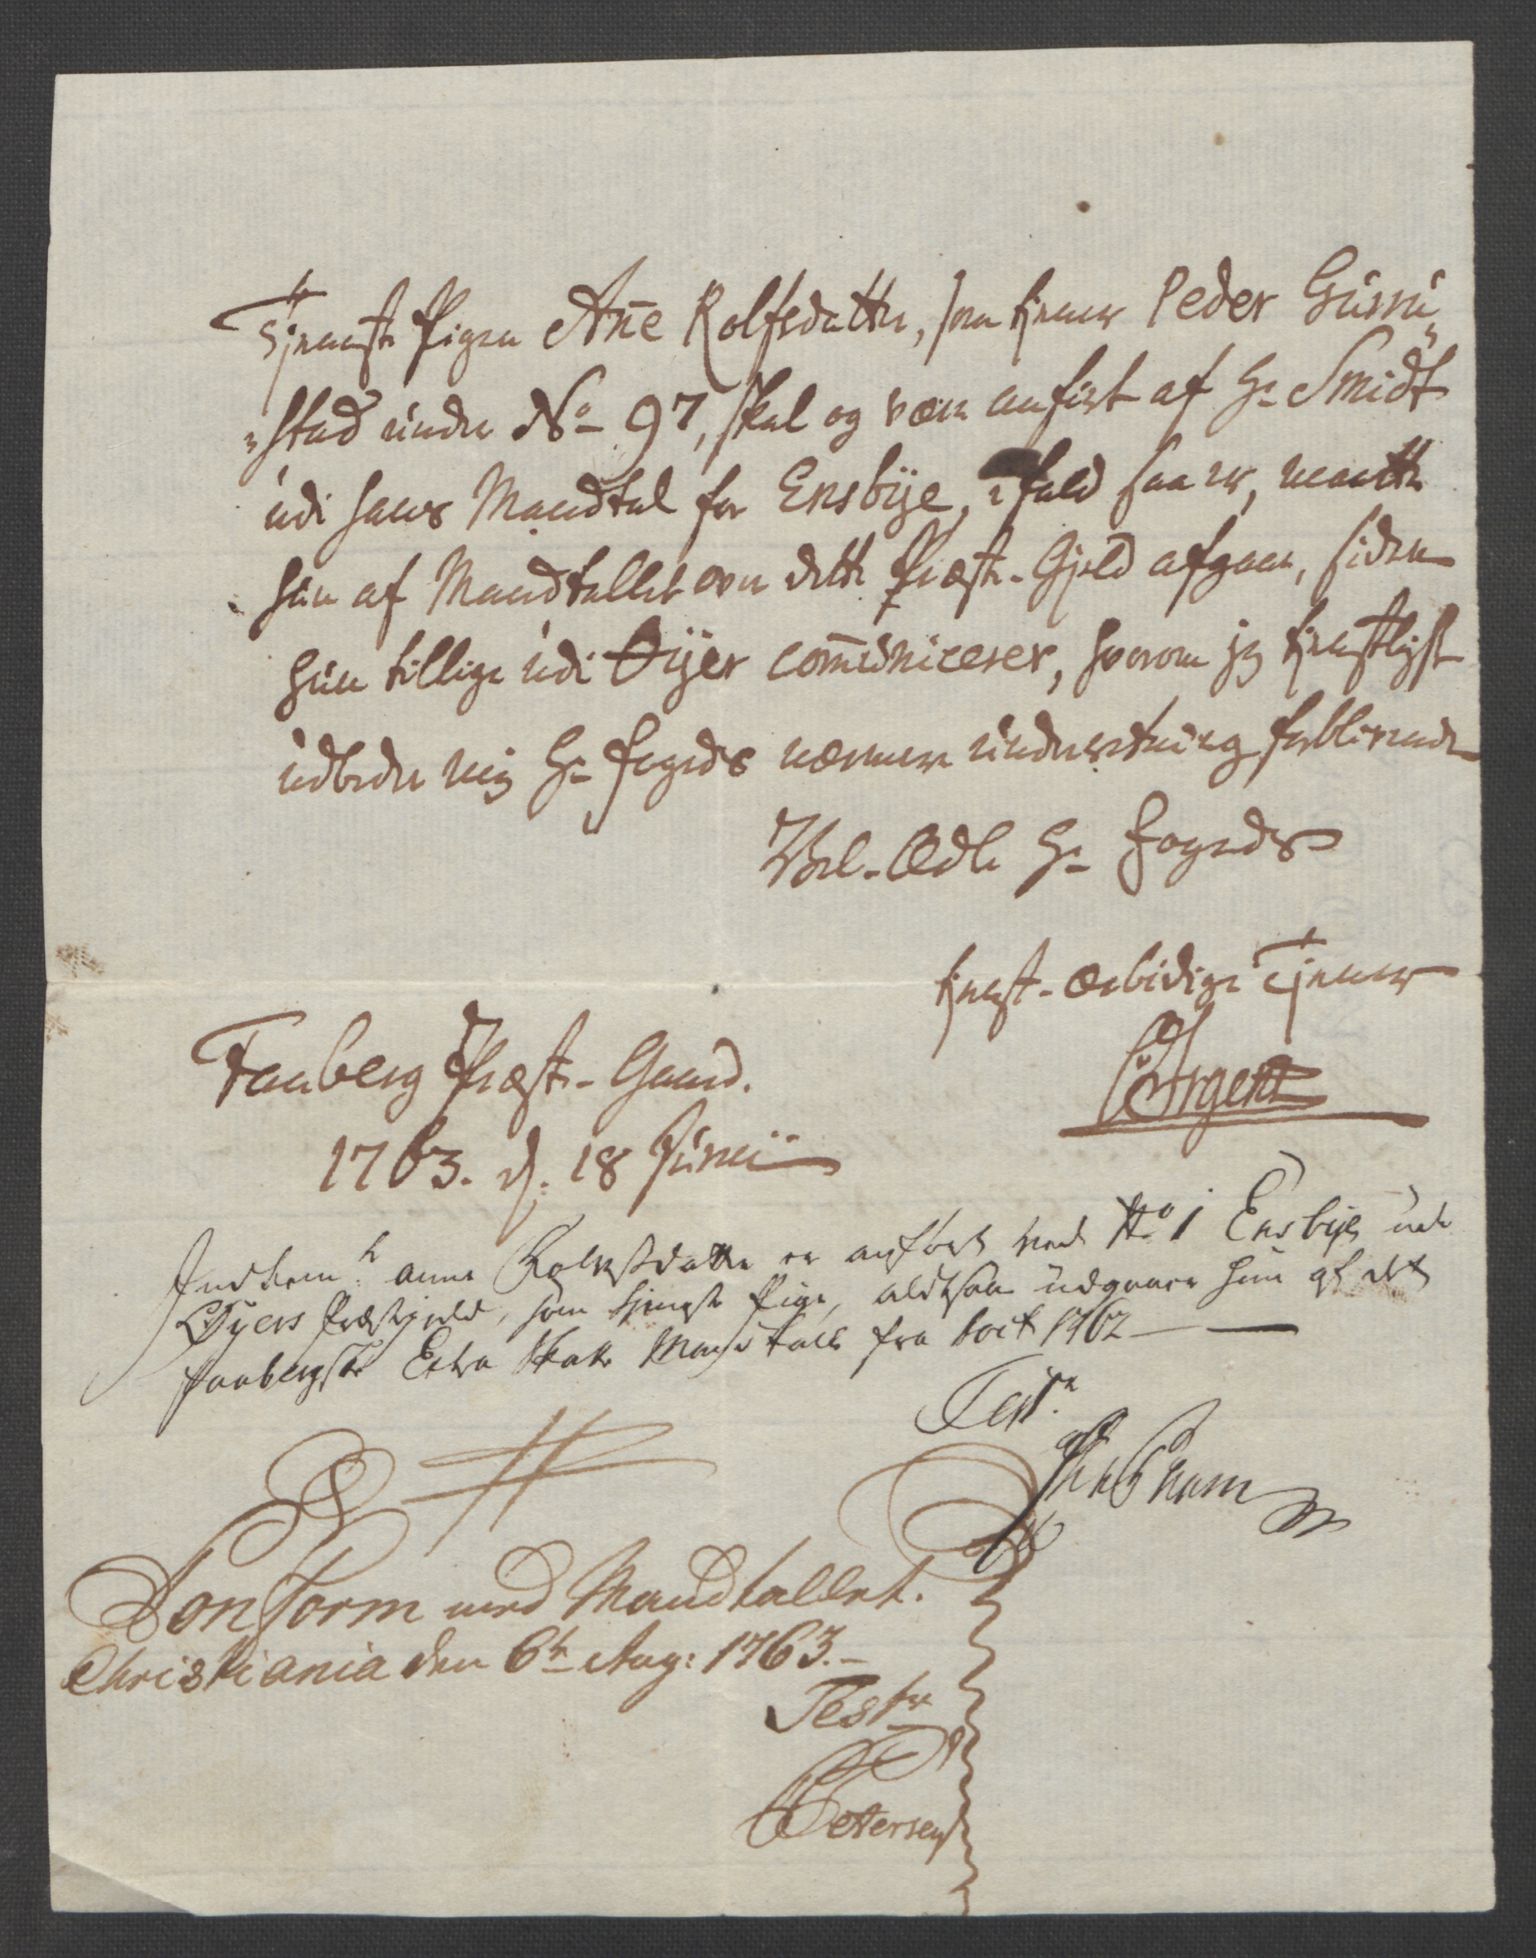 Tjeneste Pigen Añe Rolfsdatter, som tjener Peder Gussu„
„stad under No 97, skal og være anført af Hr Smidt
udi hans Mandtal for Ensbÿe, i fald saa er, maatte
hun af Mandtallet over dette Præste-Gjeld afgaae, siden
hun tillige udi Øÿer com̄uniceser, hvorom jeg tjenstligst
udbeder mig Hr Fogeds nærmere underretning forblivende
Vel-Ædle Hr Fogeds
tjenst-ærbødige Tjener
Argent
Faaberg Præste-Gaard.
1763. d. 18 Junii
anne Rolfsdatter er anført ved No 1 Ensbÿe udi
Øyers Præstegield, som tieneste Pige, altsaa udgaaer hun af det
Faabergske Extra Skatte Mandtall fra 1762
Test:
Conform med Mandtallet.
Christiania den 6te Aug: 1763.
Test:
Petersen